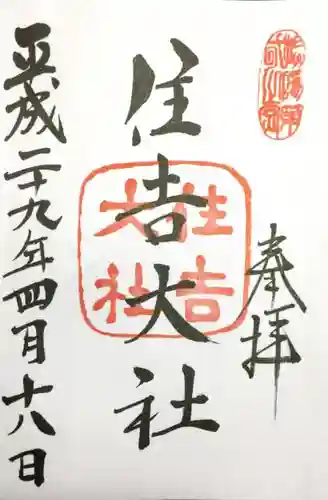 奉拝
住吉大社
住吉大社
平成二十九年四月十八日